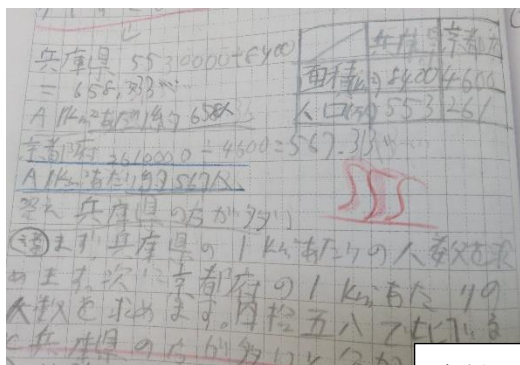 兵庫県 5530000÷8400
=658.33…
A 1km²あたり約658人
兵庫県 京都府
面積(km²) 8400 4600
人口(万人) 553 261
京都府 2610000÷4600=567.33…
A 1km²あたり約567人
答え 兵庫県の方が多い
まず、兵庫県の1km²あたりの人数を求
めます。次に京都府の1km²あたりの
人数を求めます。
兵庫県の方が多い